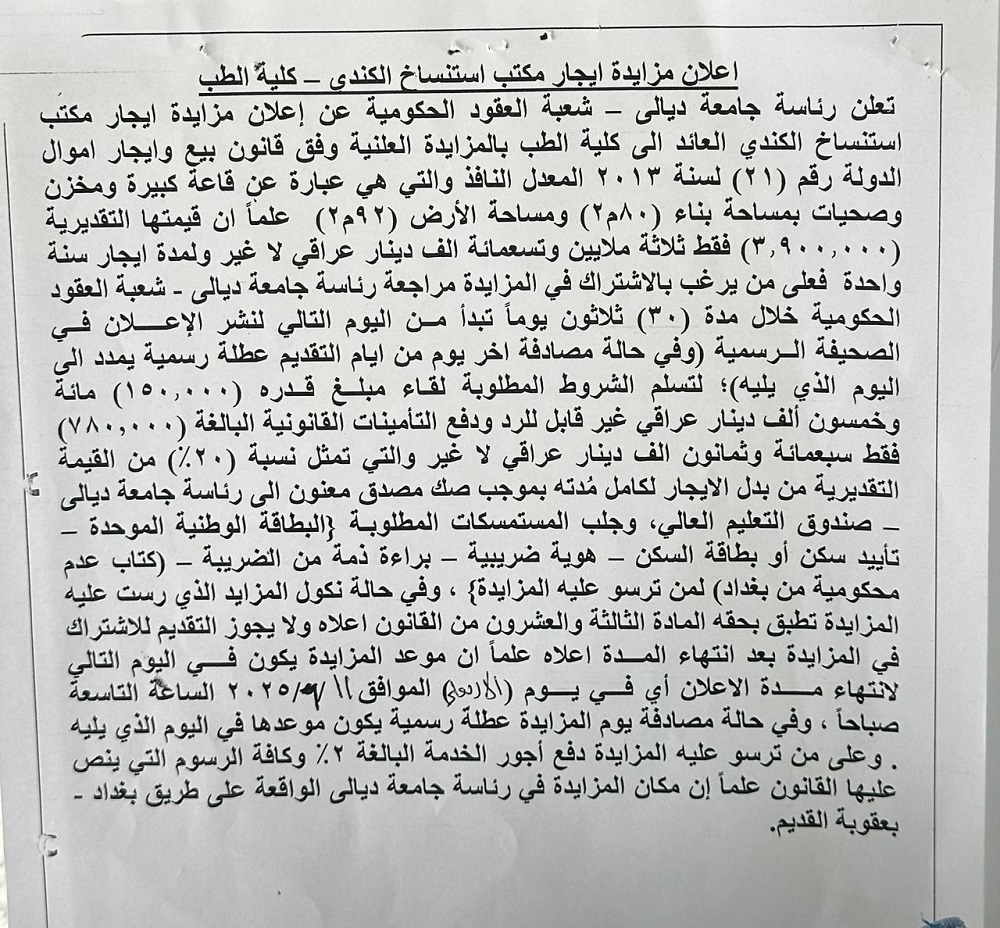 اعلان مزايدة ايجار مكتب استنساخ الكندي – كلية الطب
تعلن رئاسة جامعة ديالى – شعبة العقود الحكومية عن إعلان مزايدة ايجار مكتب
استنساخ الكندي العائد الى كلية الطب بالمزايدة العلنية وفق قانون بيع وايجار اموال
الدولة رقم (٢١) لسنة ٢٠١٣ المعدل النافذ والتي هي عبارة عن قاعة كبيرة ومخزن
وصحيات بمساحة بناء (٨٠م٢) ومساحة الأرض (٩٢م٢) علماً ان قيمتها التقديرية
(٣,٩٠٠,٠٠٠) فقط ثلاثة ملايين وتسعمائة الف دينار عراقي لا غير ولمدة ايجار سنة
واحدة فعلى من يرغب بالاشتراك في المزايدة مراجعة رئاسة جامعة ديالى - شعبة العقود
الحكومية خلال مدة (٣٠) ثلاثون يوماً تبدأ من اليوم التالي لنشر الإعلان في
الصحيفة الرسمية (وفي حالة مصادفة اخر يوم من ايام التقديم عطلة رسمية يمدد الى
اليوم الذي يليه)؛ لتسلم الشروط المطلوبة لقاء مبلغ قدره (١٥٠,٠٠٠) مائة
وخمسون ألف دينار عراقي غير قابل للرد ودفع التأمينات القانونية البالغة (٧٨٠,٠٠٠)
فقط سبعمائة وثمانون الف دينار عراقي لا غير والتي تمثل نسبة (٢٠٪) من القيمة
التقديرية من بدل الايجار لكامل مُدته بموجب صك مصدق معنون الى رئاسة جامعة ديالى
– صندوق التعليم العالي، وجلب المستمسكات المطلوبة {البطاقة الوطنية الموحدة –
تأييد سكن أو بطاقة السكن – هوية ضريبية – براءة ذمة من الضريبة – (كتاب عدم
محكومية من بغداد) لمن ترسو عليه المزايدة} ، وفي حالة نكول المزايد الذي رست عليه
المزايدة تطبق بحقه المادة الثالثة والعشرون من القانون اعلاه ولا يجوز التقديم للاشتراك
في المزايدة بعد انتهاء المدة اعلاه علماً ان موعد المزايدة يكون في اليوم التالي
لانتهاء مدة الاعلان أي في يوم (الاربعاء) الموافق ١١/ /٢٠٢٥ الساعة التاسعة
صباحاً ، وفي حالة مصادفة يوم المزايدة عطلة رسمية يكون موعدها في اليوم الذي يليه
. وعلى من ترسو عليه المزايدة دفع أجور الخدمة البالغة ٢٪ وكافة الرسوم التي ينص
عليها القانون علماً إن مكان المزايدة في رئاسة جامعة ديالى الواقعة على طريق بغداد -
بعقوبة القديم.